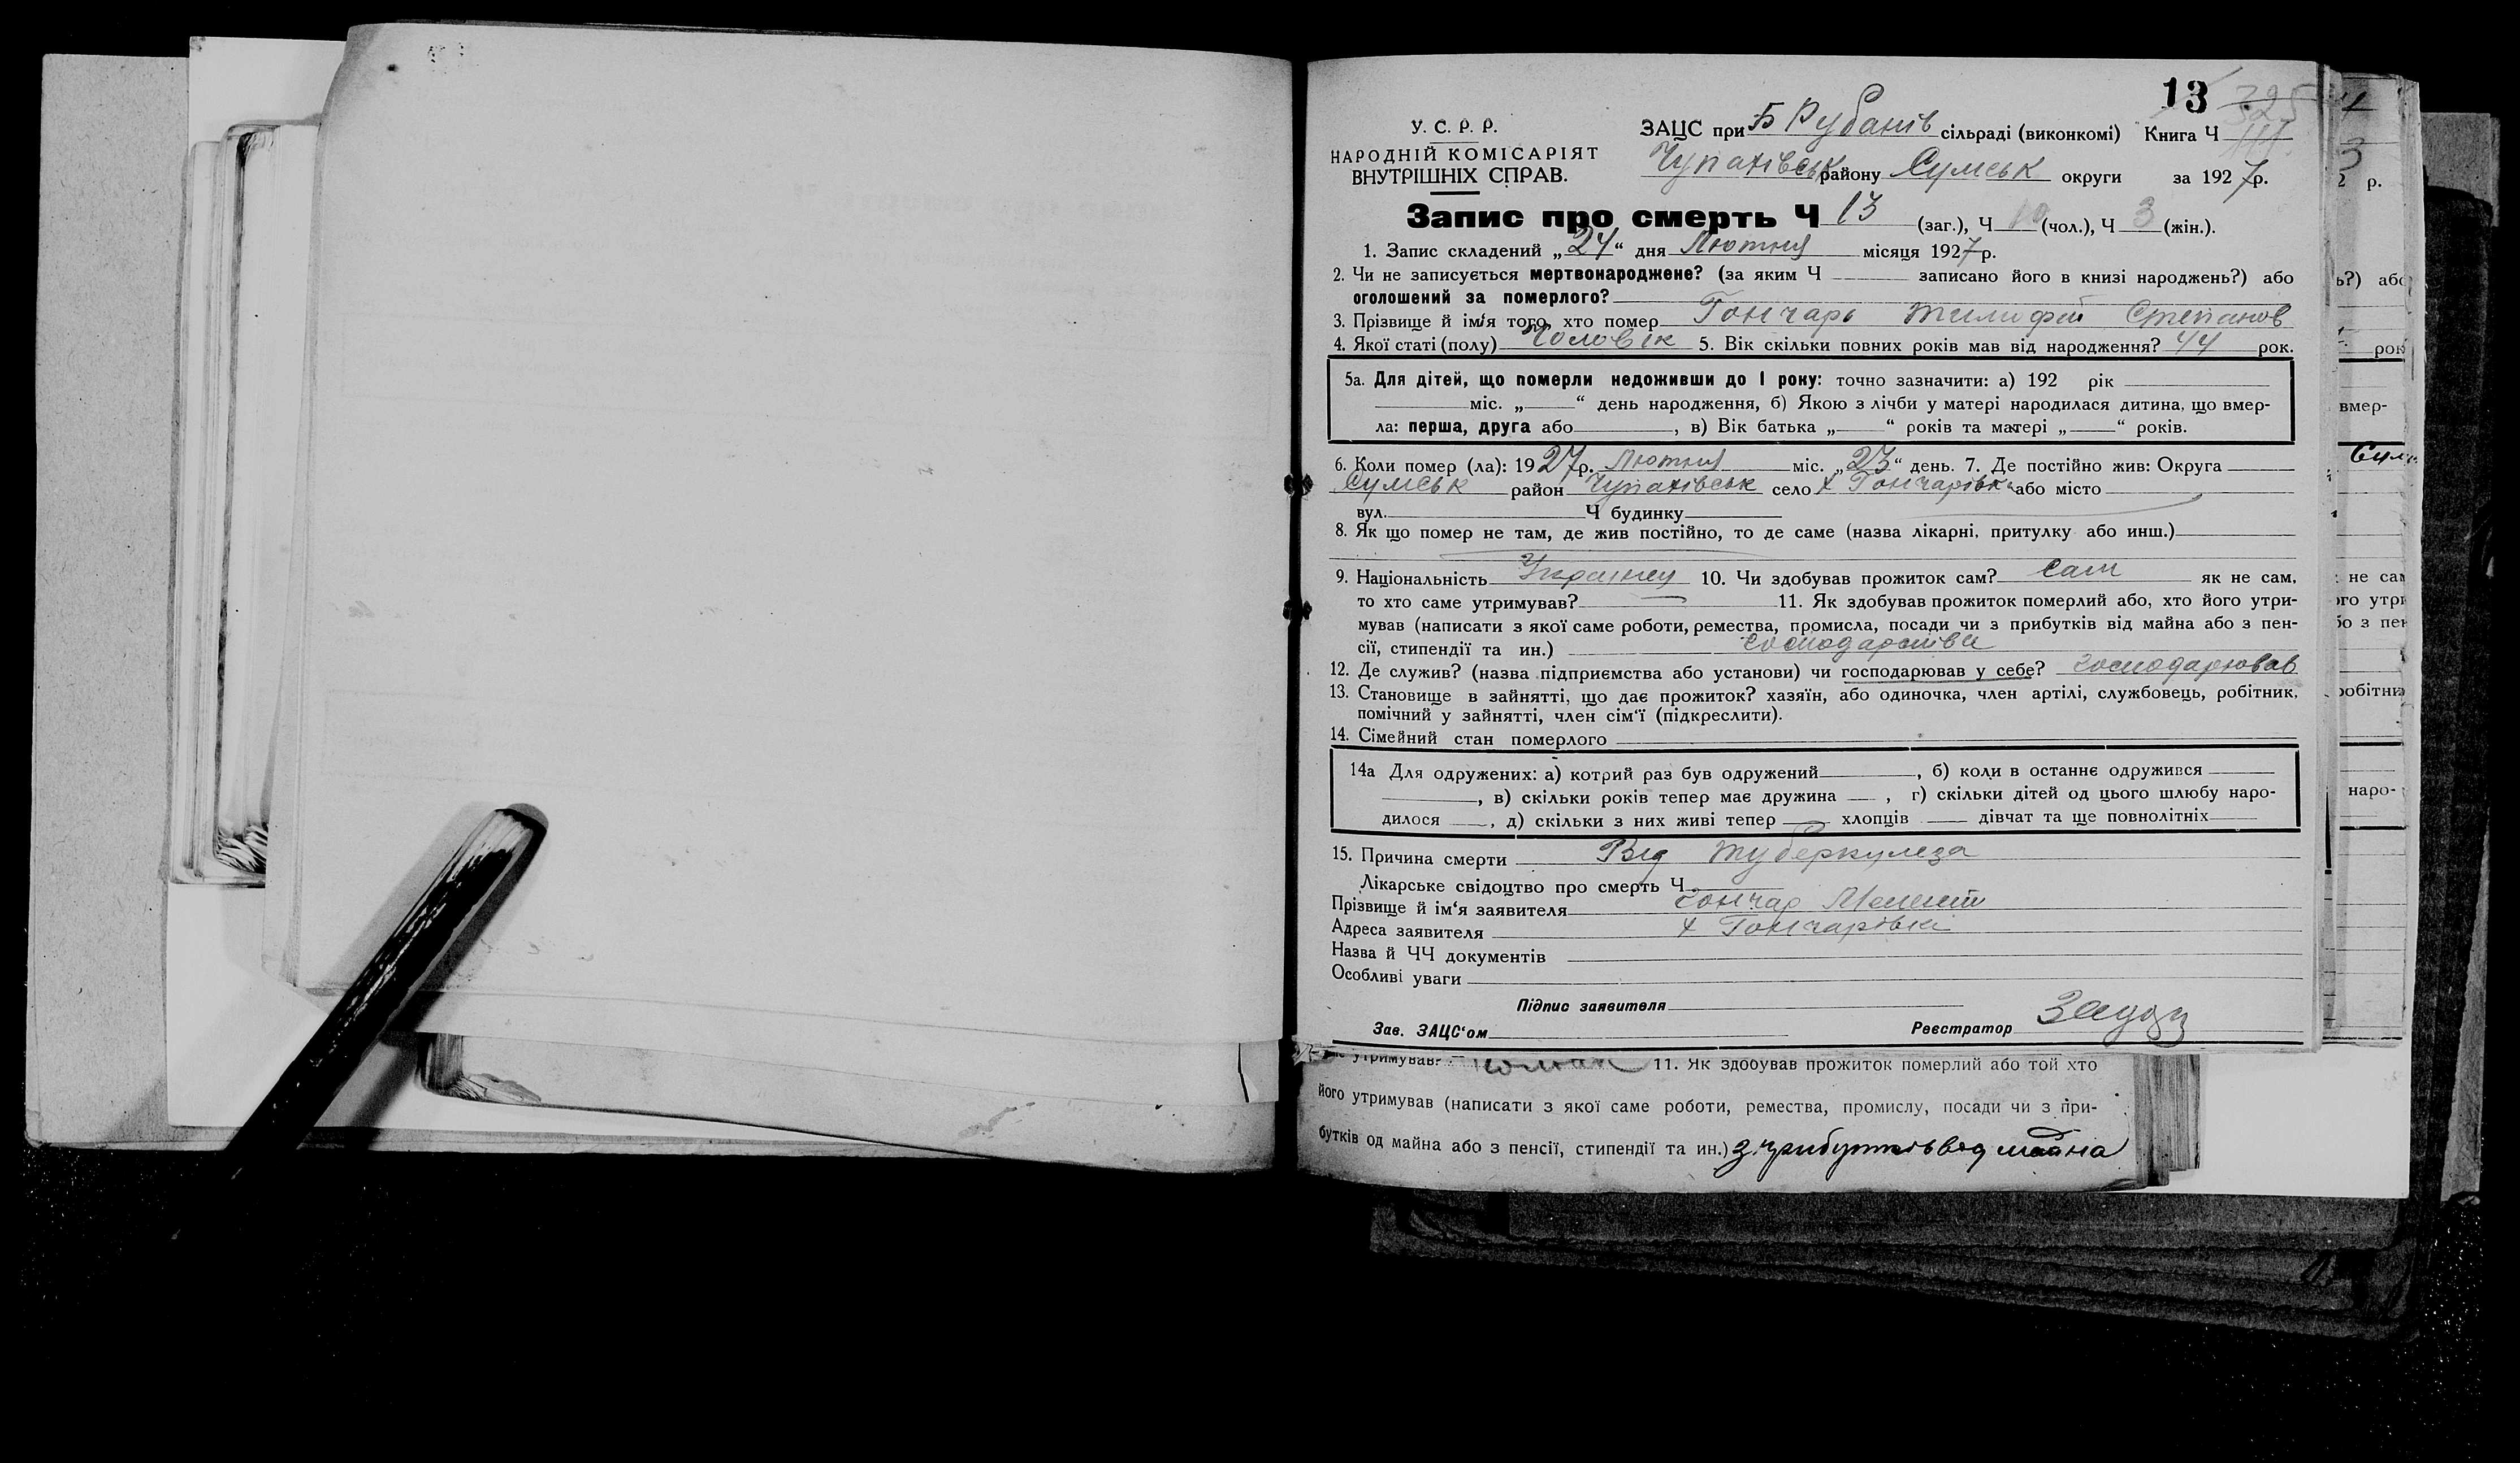 13 325
У. С. Р. Р.
НАРОДНІЙ КОМІСАРІЯТ
ВНУТРІШНІХ СПРАВ.
ЗАЦС при Б Рубанів сільраді (виконкомі) Книга Ч
Чупахівськ району Сумськ округи за 1927 р.
Запис про смерть Ч 13 (заг.), Ч 10 (чол.), Ч 3 (жін.).
1. Запис складений „24“ дня Лютня місяця 1927 р.
2. Чи не записується мертвонароджене? (за яким Ч записано його в книзі народжень?) або
оголошений за померлого?
3. Прізвище й ім'я того, хто помер Гончарь Тимофій Степанов
4. Якої статі (полу) Чоловік 5. Вік скільки повних років мав від народження? 44 рок.
5а. Для дітей, що померли недоживши до 1 року: точно зазначити: а) 192 рік
міс. „ “ день народження, б) Якою з лічби у матері народилася дитина, що вмер-
ла: перша, друга або , в) Вік батька „ “ років та матері „ “ років.
6. Коли помер (ла): 1927 р. Лютня міс. „23“ день. 7. Де постійно жив: Округа
Сумськ район Чупахівськ село х Гончарівка або місто
вул. Ч будинку
8. Як що помер не там, де жив постійно, то де саме (назва лікарні, притулку або инш.)
9. Національність Українец 10. Чи здобував прожиток сам? Сам як не сам,
то хто саме утримував? 11. Як здобував прожиток померлий або, хто його утри-
мував (написати з якої саме роботи, ремества, промисла, посади чи з прибутків від майна або з пен-
сії, стипендії та ин.) господарства
12. Де служив? (назва підприємства або установи) чи господарював у себе? господарював
13. Становище в зайнятті, що дає прожиток? хазяїн, або одиночка, член артілі, службовець, робітник,
помічний у зайнятті, член сім'ї (підкреслити).
14. Сімейний стан померлого
14а Для одружених: а) котрий раз був одружений , б) коли в останнє одружився
, в) скільки років тепер має дружина , г) скільки дітей од цього шлюбу наро-
дилося , д) скільки з них живі тепер хлопців дівчат та ще повнолітніх
15. Причина смерти Від туберкулеза
Лікарське свідоцтво про смерть Ч
Прізвище й ім'я заявителя Гончар
Адреса заявителя х Гончарівка
Назва й ЧЧ документів
Особливі уваги
Підпис заявителя
Зав. ЗАЦС'ом Реєстратор
утримував? 11. Як здобував прожиток померлий або той хто
його утримував (написати з якої саме роботи, ремества, промислу, посади чи з при-
бутків од майна або з пенсії, стипендії та ин.) з прибутків від майна
3
2 р.
ь?) або
рок
вмер-
Сум
не сам
ого утри
бо з пен
робітник
наро-